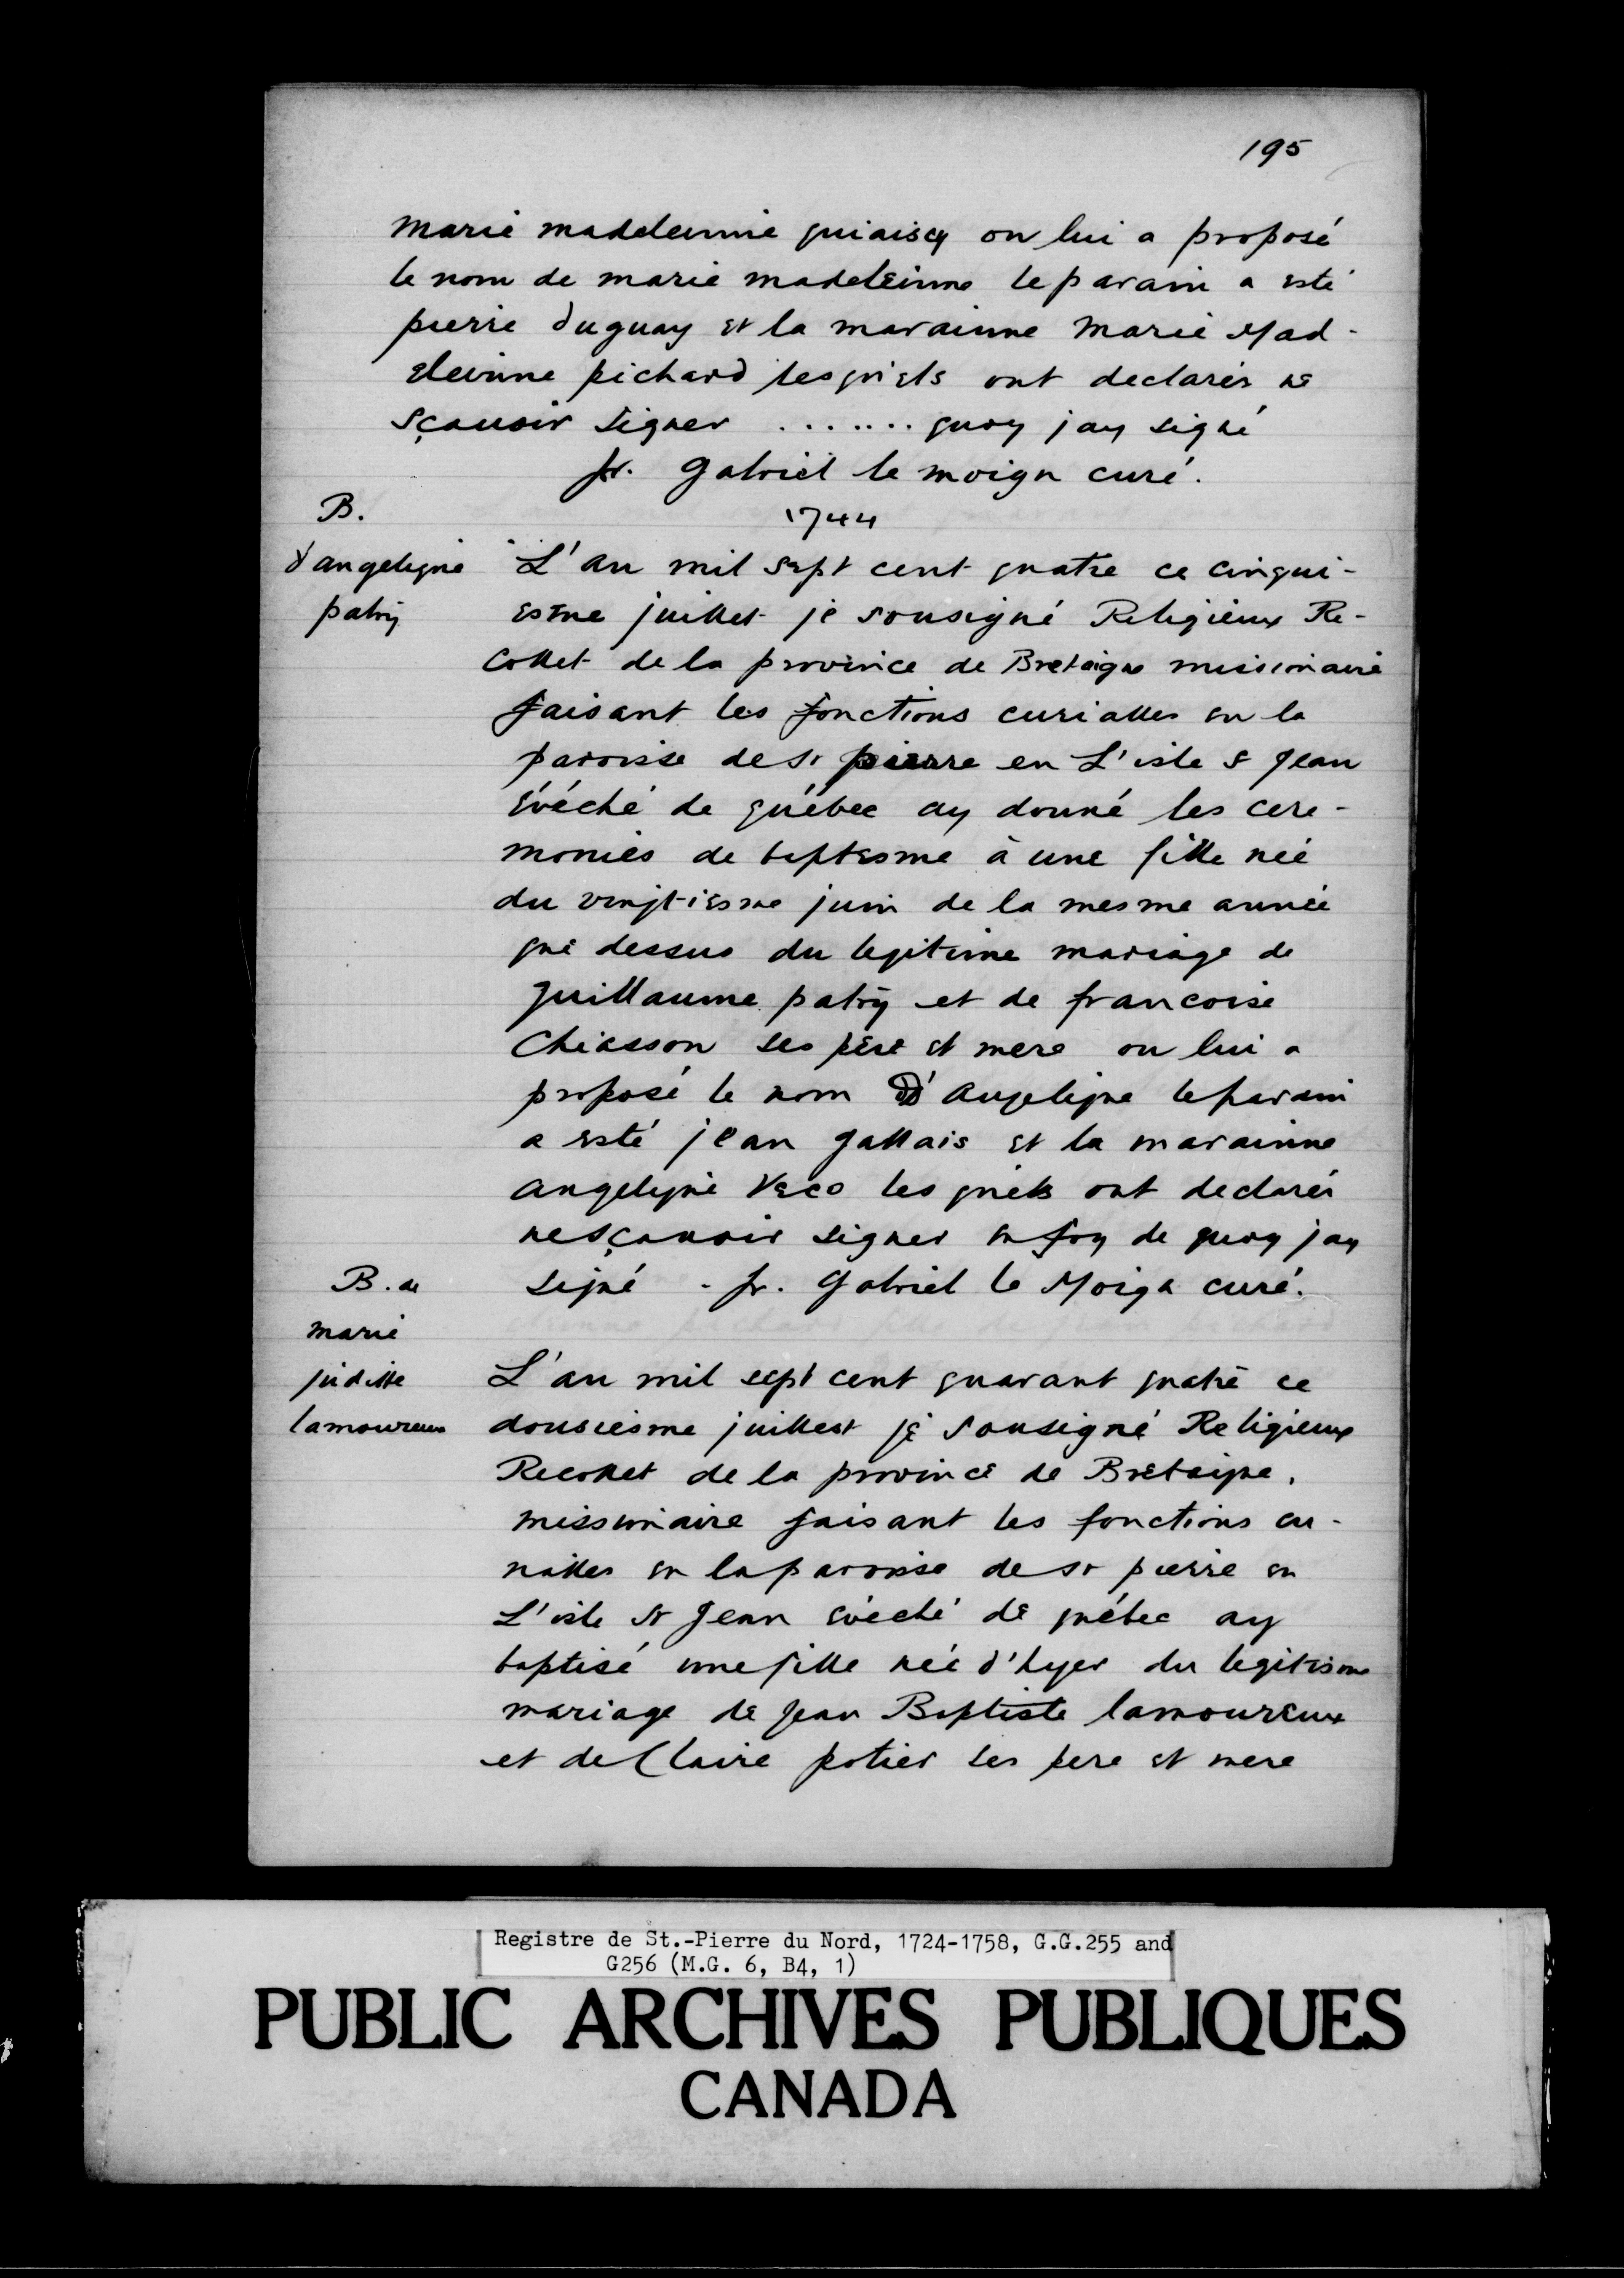 195
Marie madeleinne on lui a proposé
le nom de marie madeleinne le parain a esté
pierre duguay et la marainne Marie Mad-
eleinne pichard lesquels ont declarés ne
sçauoir signer ....... quoy jay signé
fr. Gabriel le moign curé.
1744
B.
d'angelique
patry
L'an mil sept cent quatre ce cinqui-
esme juillet je sousigné Religieux Re-
collet de la province de Bretaigne missionaire
faisant les fonctions curialles en la
paroisse de St pierre en L'isle S Jean
évéché de québec ay donné les cere-
monies de baptesme à une fille née
du vingtiesme juin de la mesme année
que dessus du legitime mariage de
guillaume patry et de francoise
Chiasson ses père et mere on lui a
proposé le nom d'Angelique le parain
a esté jean gallais et la marainne
angelique Veco les quels ont declarés
ne sçauoir signer en foy de quoy jay
signé - fr. Gabriel le Moign curé.
B. de
marie
juditte
lamoureux
L'an mil sept cent quarant quatre ce
dousiesme juillest je sousigné Religieux
Recollet de la province de Bretaigne,
missionaire faisant les fonctions cu-
rialles en la paroisse de St pierre en
L'isle St Jean evéché de québec ay
baptisé une fille née d'hyer du legitisme
mariage de Jean Baptiste lamoureux
et de Claire potier ses pere et mere
Registre de St.-Pierre du Nord, 1724-1758, G.G.255 and
G256 (M.G. 6, B4, 1)
PUBLIC ARCHIVES PUBLIQUES
CANADA